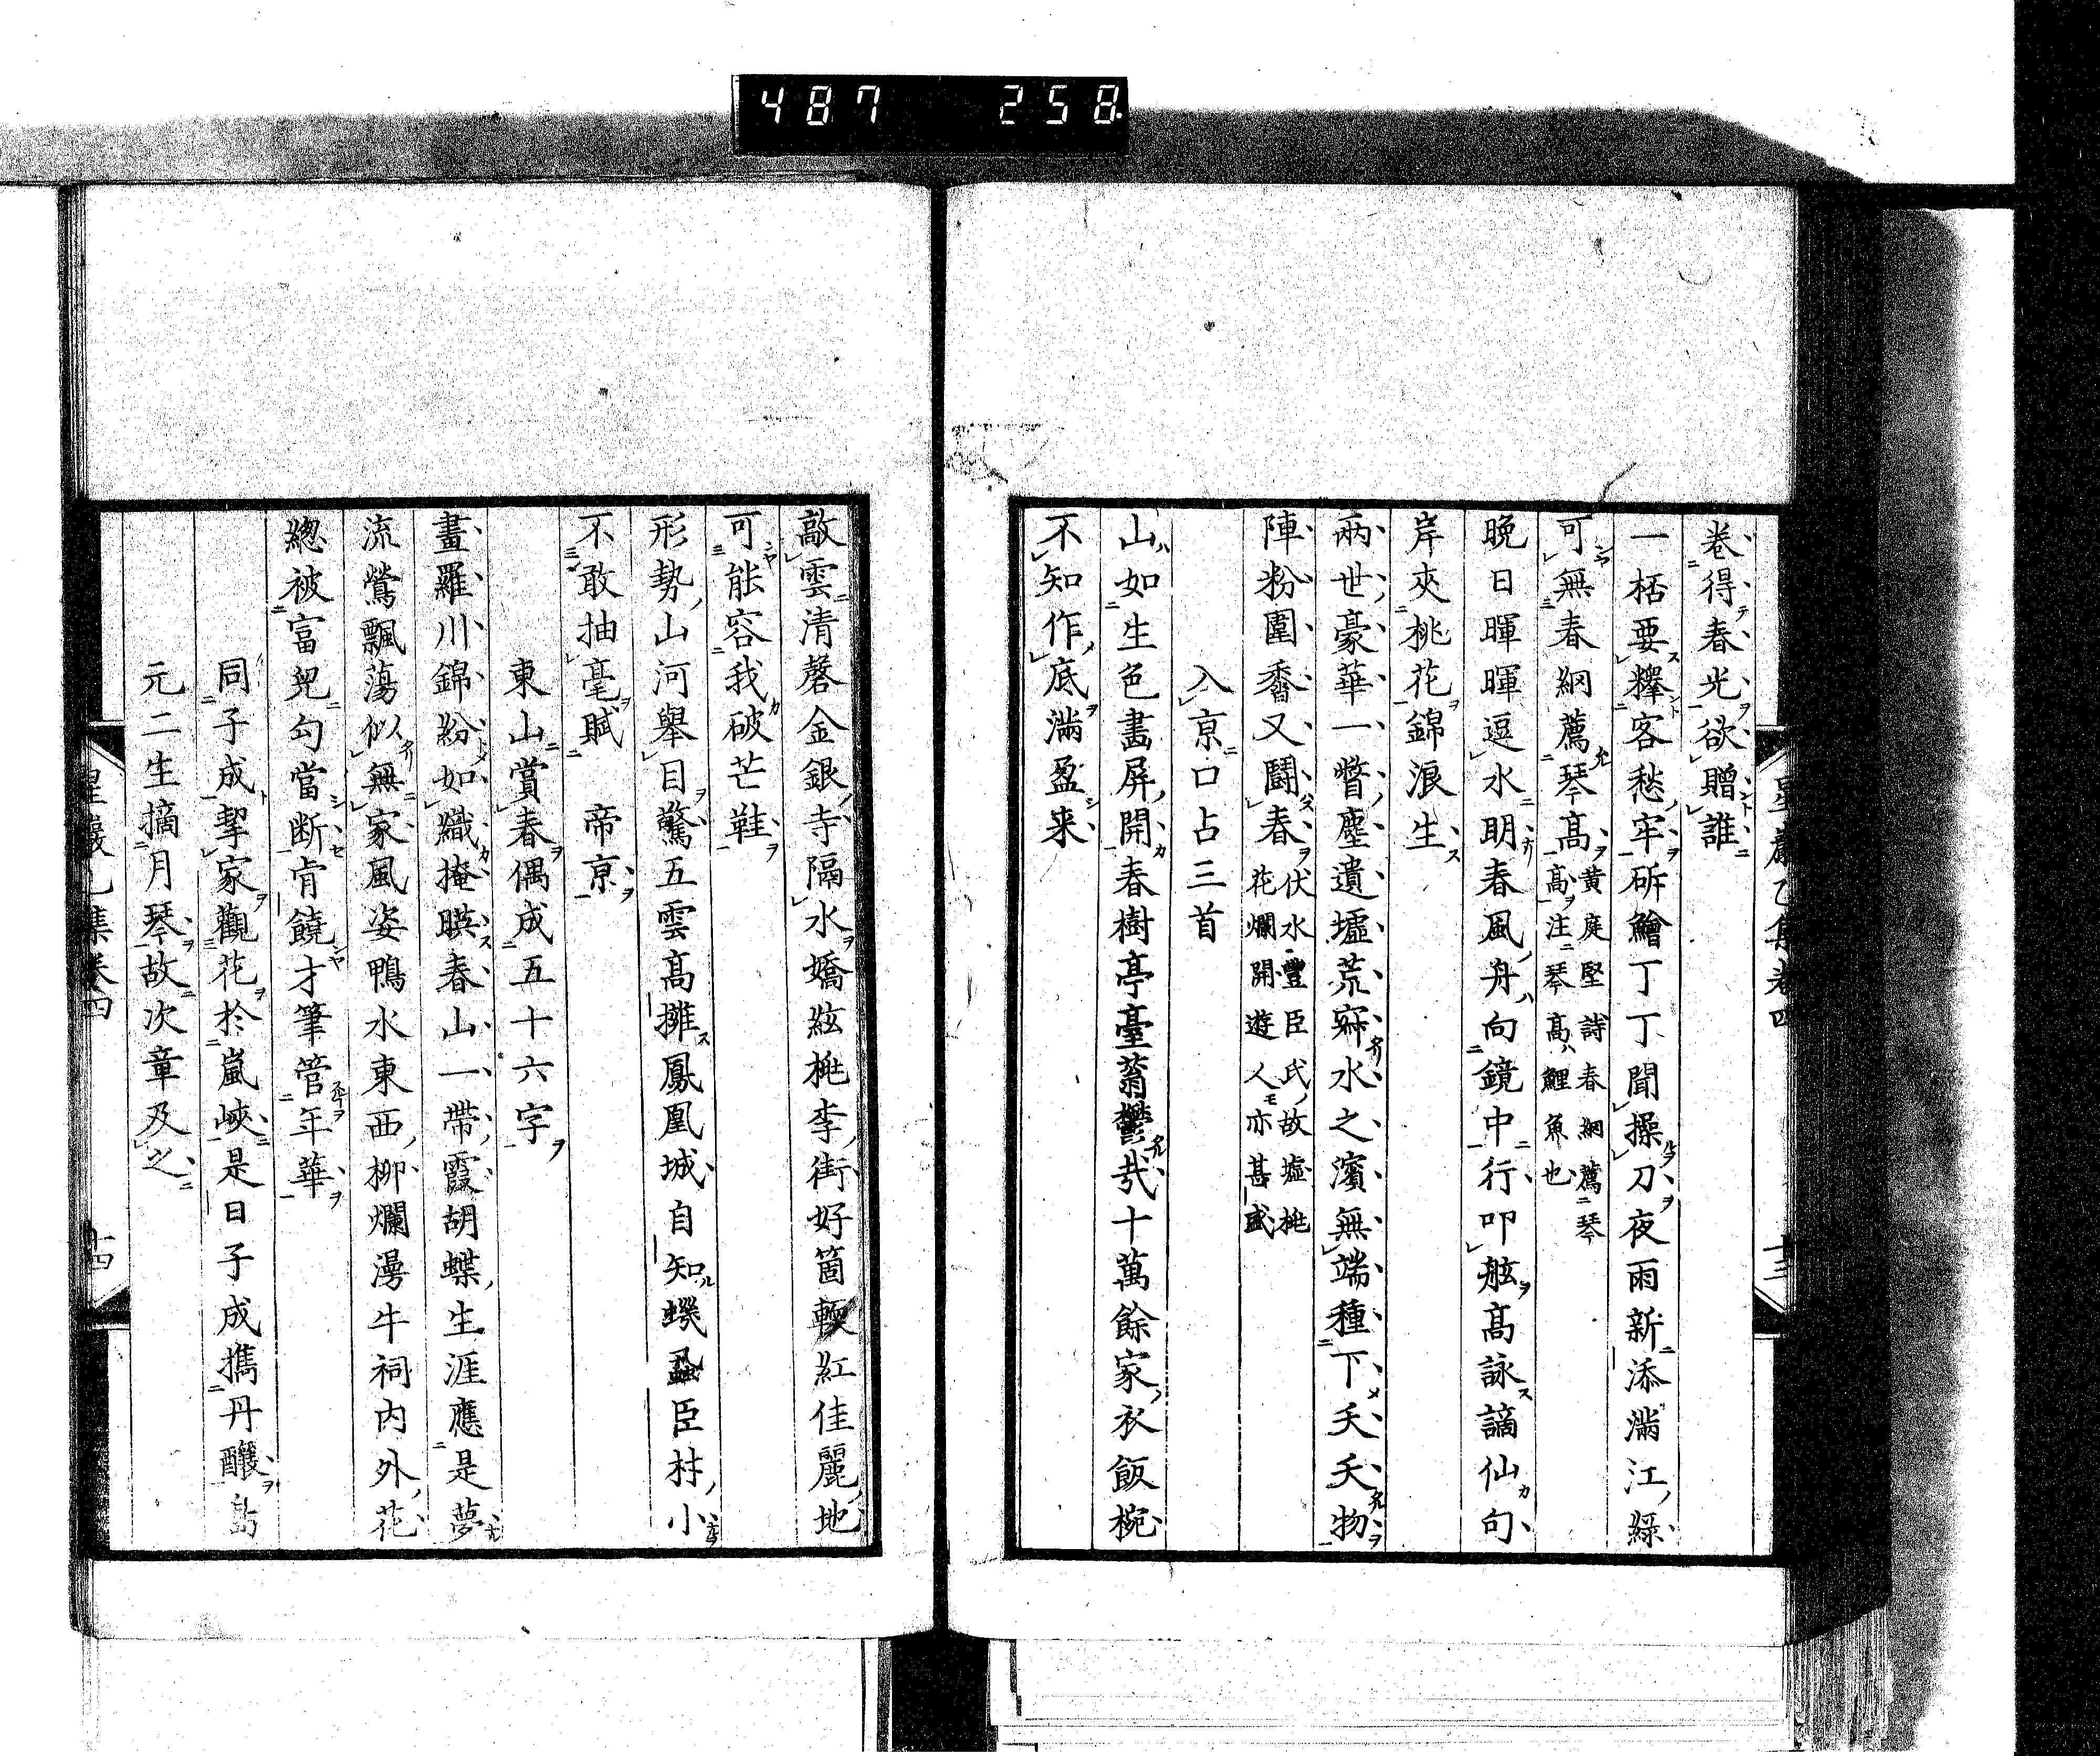 487 258
星巖乙集卷四 十三
卷得春光欲贈誰
一桮要釋客愁牢斫鱠丁丁聞操刀夜雨新添滿江綠
可無春網薦琴高黄庭堅詩春網薦琴高注琴高鯉魚也
晚日暉暉逗水明春風舟向鏡中行叩舷高詠謫仙句
岸夾桃花錦浪生
兩世豪華一瞥塵遺墟荒寂水之濱無端種下夭夭物
陣粉圍香又鬪春伏水豐臣氏故墟桃花爛開遊人亦甚盛
入京口占三首
山如生色畵屏開春樹亭臺蓊鬱哉十萬餘家炊飯椀
不知作底滿盈来
敲雲清磬金銀寺隔水嬌絃桃李街好箇輭紅佳麗地
可能容我破芒鞋
形勢山河舉目驚五雲高擁鳳凰城自知蟣蝨臣材小
不敢抽毫賦 帝京
東山賞春偶成五十六字
畫羅川錦紛如織掩暎春山一帶霞胡蝶生涯應是夢
流鶯飄蕩似無家風姿鴨水東西柳爛漫牛祠内外花
總被富兒勾當断肯饒才筆管年華
同子成挈家觀花於嵐峽是日子成携丹釀島
元二生摘月琴故次章及之
星巖乙集卷四 十四